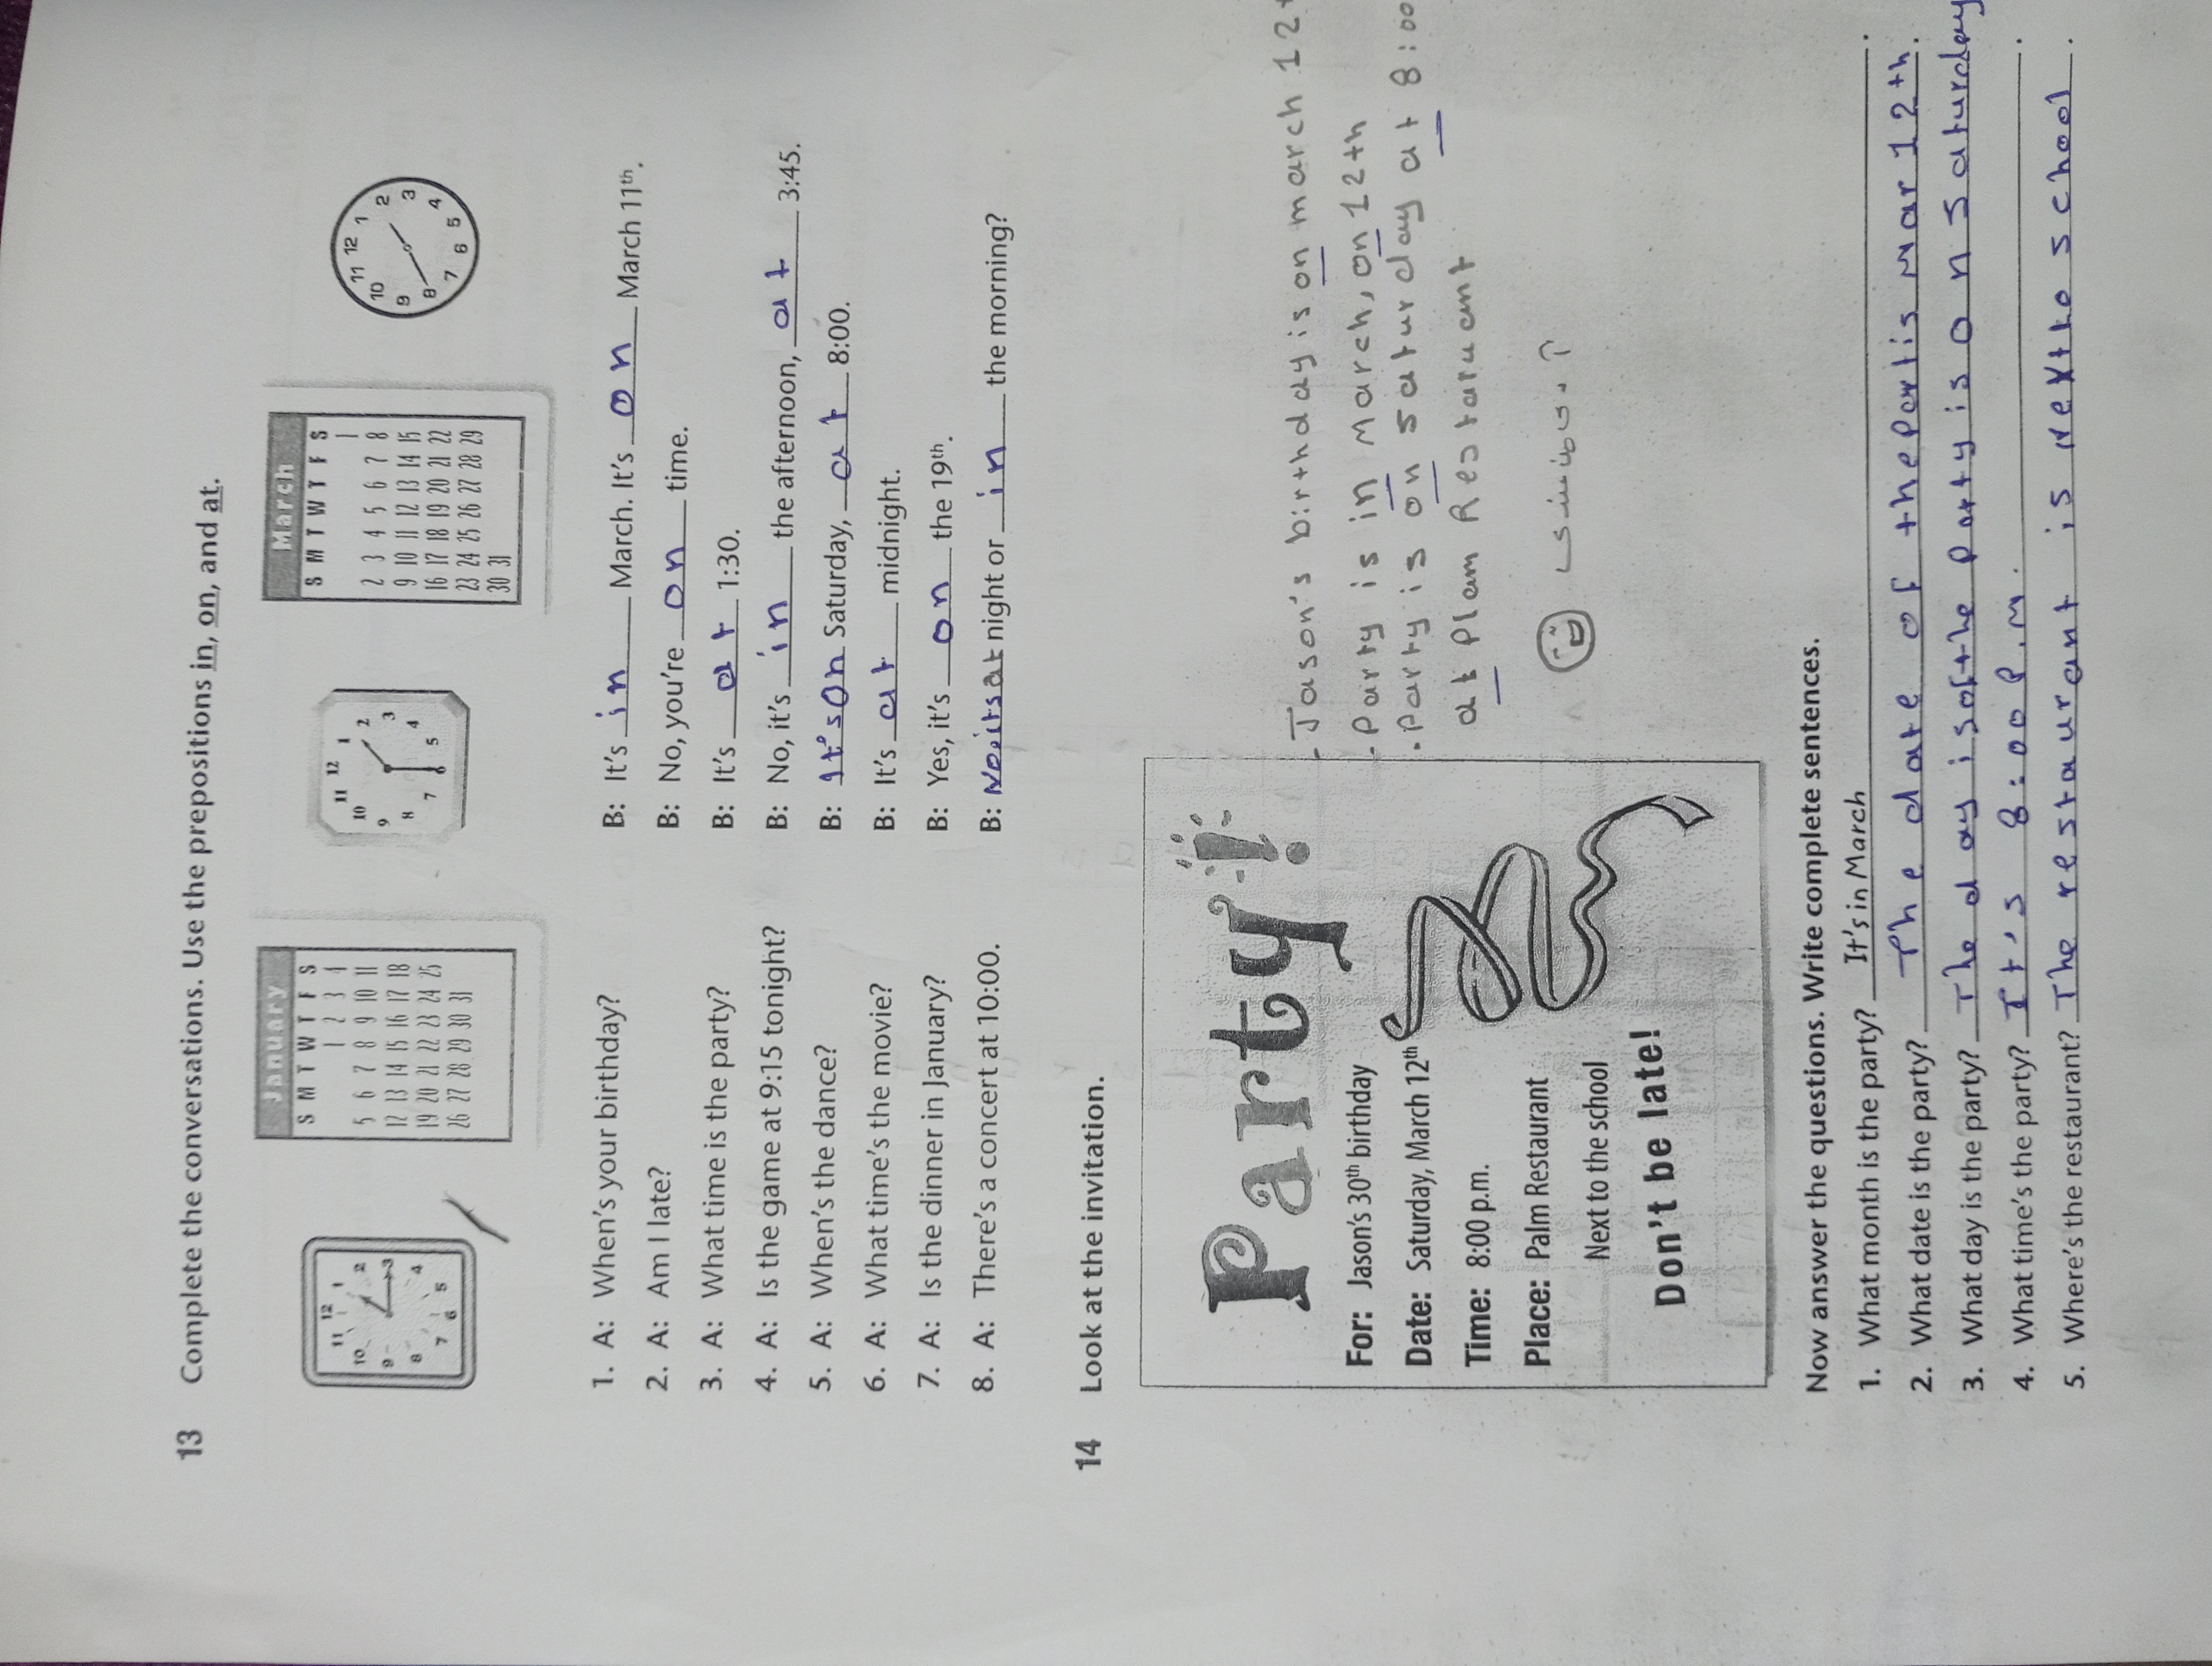 13 Complete the conversations. Use the prepositions in, on, and at.
January
S M T W T F S
1 2 3 4
5 6 7 8 9 10 11
12 13 14 15 16 17 18
19 20 21 22 23 24 25
26 27 28 29 30 31
March
S M T W T F S
1
2 3 4 5 6 7 8
9 10 11 12 13 14 15
16 17 18 19 20 21 22
23 24 25 26 27 28 29
30 31
12 1 2 3 4 5 6 7 8 9 10 11
12 1 2 3 4 5 6 7 8 9 10 11
12 1 2 3 4 5 6 7 8 9 10 11
1. A: When's your birthday? B: It's in March. It's on March 11th.
2. A: Am I late? B: No, you're on time.
3. A: What time is the party? B: It's at 1:30.
4. A: Is the game at 9:15 tonight? B: No, it's in the afternoon, at 3:45.
5. A: When's the dance? B: It's On Saturday, at 8:00.
6. A: What time's the movie? B: It's at midnight.
7. A: Is the dinner in January? B: Yes, it's on the 19th.
8. A: There's a concert at 10:00. B: No, its at night or in the morning?
14 Look at the invitation.
Party!
For: Jason's 30th birthday
Date: Saturday, March 12th
Time: 8:00 p.m.
Place: Palm Restaurant
Next to the school
Don't be late!
- Jason's birthday is on march 12
- Party is in March, on 12th
. Party is on saturday at 8:00
at Plam Restaruant
Now answer the questions. Write complete sentences.
1. What month is the party? It's in March.
2. What date is the party? The date of the Partis Mar 12th.
3. What day is the party? The day is of the party is on Saturday
4. What time's the party? It's 8:00 P.M.
5. Where's the restaurant? The restaurant is Next to school.